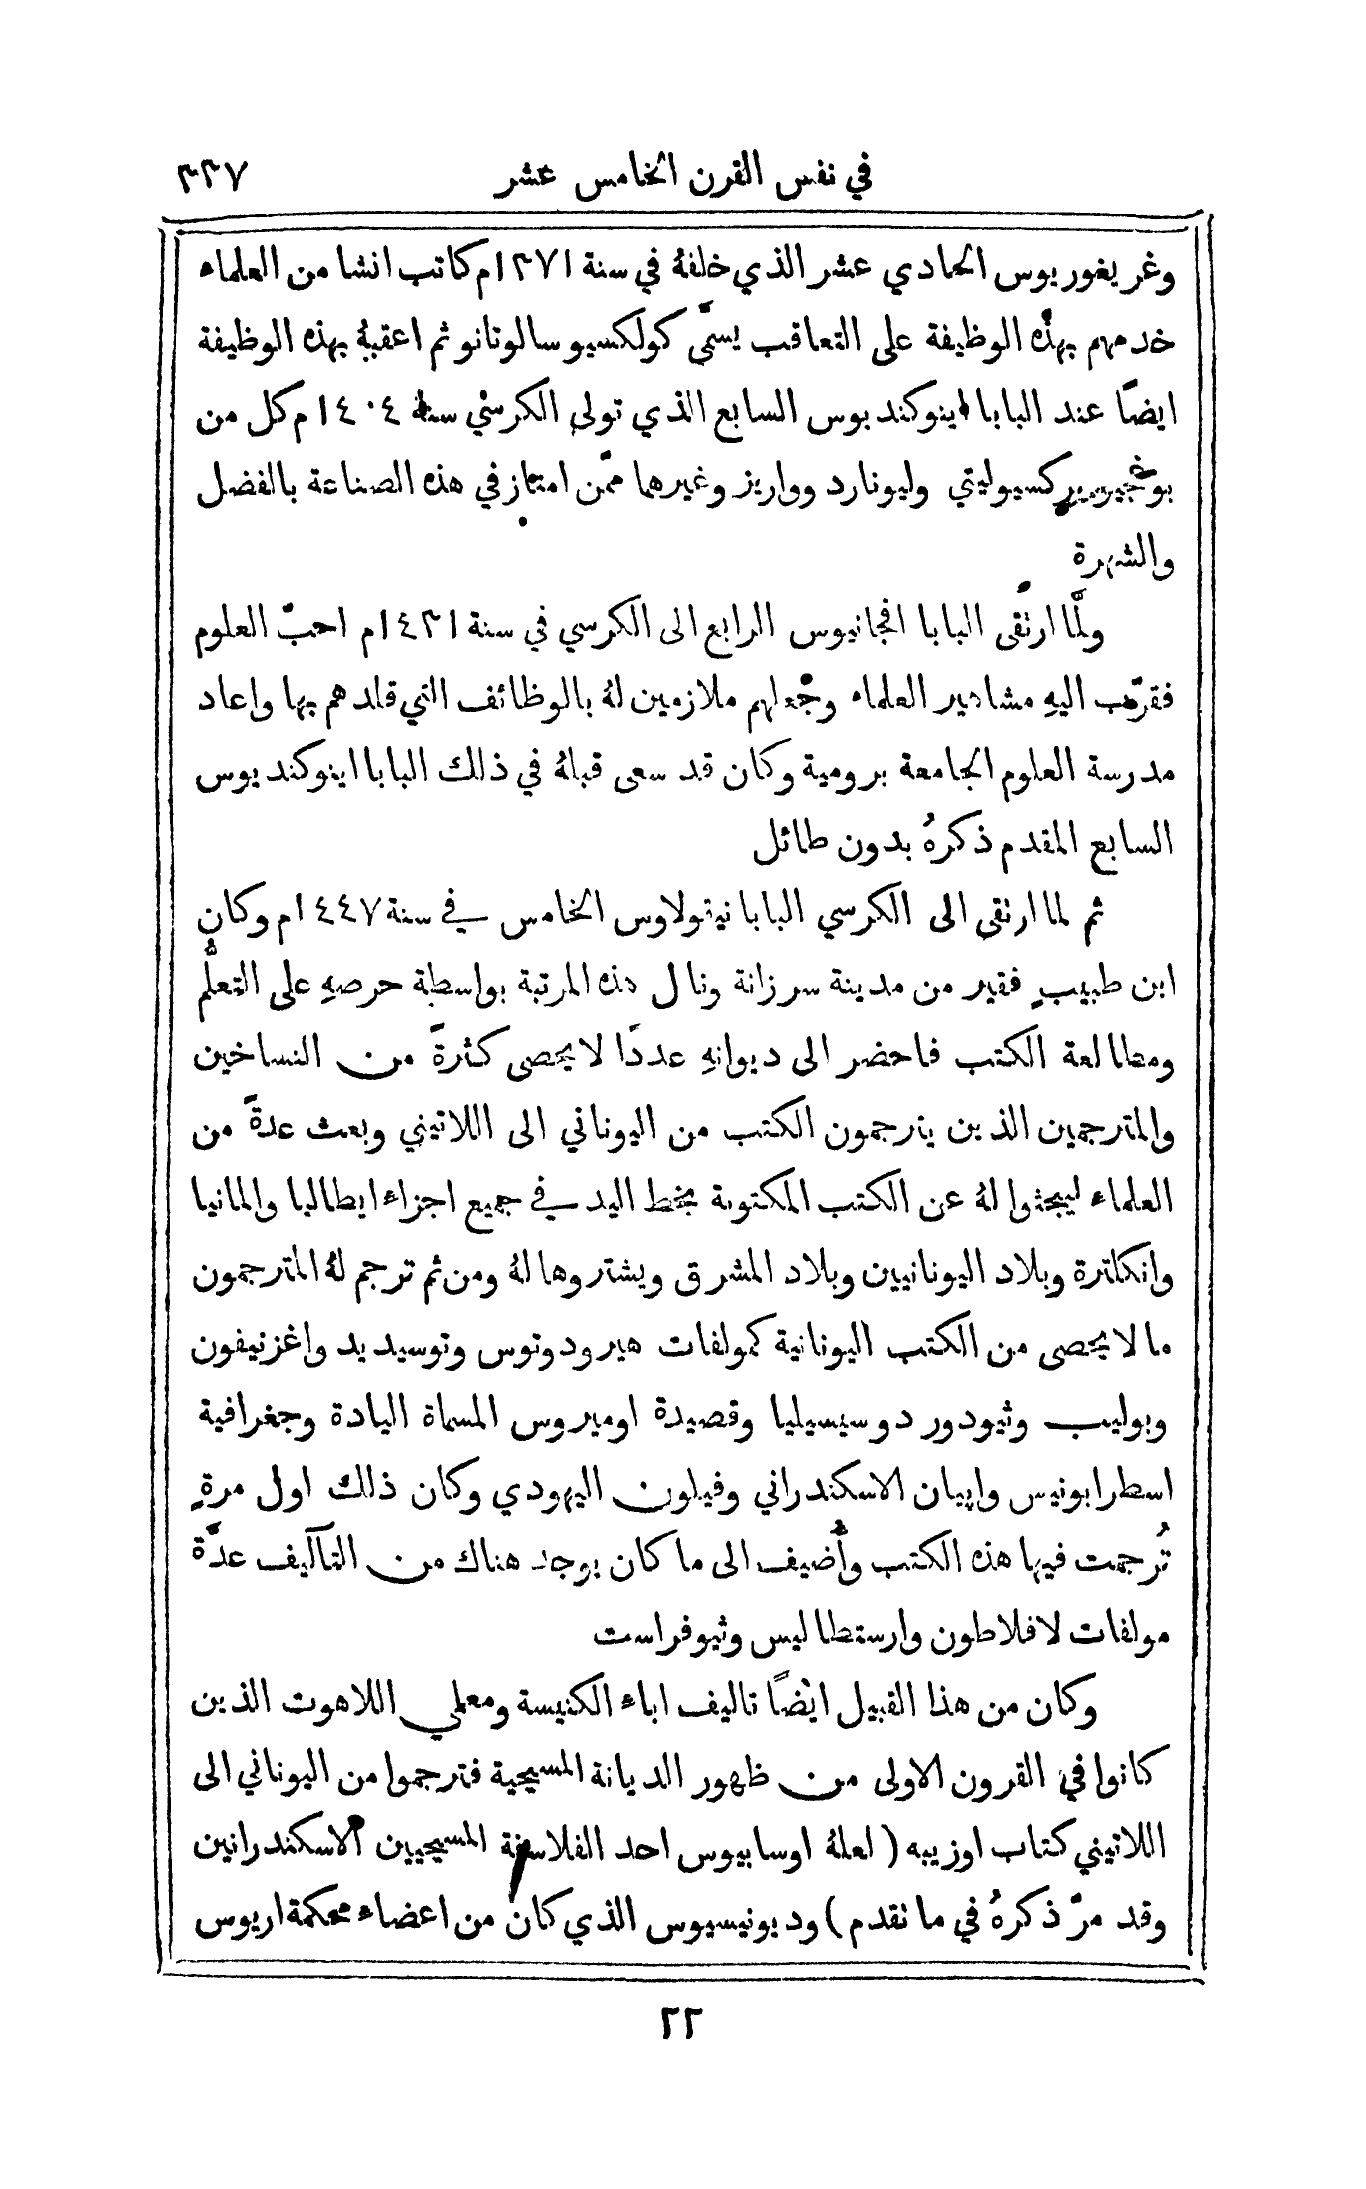 في نفس القرن الخامس عشر ٣٣٧
وغريغوريوس الحادي عشر الذي خلفهُ في سنة ١٣٧١م كاتب انشا من العلماء
خدمهم بهذه الوظيفة على التعاقب يسمَّى كولكسيو سالوتانو ثم اعقبهُ بهذه الوظيفة
ايضًا عند البابا اينوكنديوس السابع الذي تولى الكرسي سنة ١٤٠٤م كل من
وليونارد وواريز وغيرها ممَّن امتاز في هذه الصناعة بالفضل
والشهرة
ولمَّا ارتقى البابا افجانيوس الرابع الى الكرسي في سنة ١٤٣١م احبَّ العلوم
فقرَّب اليهِ مشاهير العلماء وجعلهم ملازمين لهُ بالوظائف التي قلدهم بها واعاد
مدرسة العلوم الجامعة برومية وكان قد سعى قبلهُ في ذلك البابا اينوكنديوس
السابع المقدم ذكرهُ بدون طائل
ثم لما ارتقى الى الكرسي البابا نيقولاوس الخامس في سنة ١٤٤٧م وكان
ابن طبيبٍ فقير من مدينة سرزانة ونال هذه المرتبة بواسطة حرصهِ على التعلُّم
ومطالعة الكتب فاحضر الى ديوانهِ عددًا لا يحصى كثرةً من النساخين
والمترجمين الذين يترجمون الكتب من اليوناني الى اللاتيني وبعث عدةً من
العلماء ليبحثوا لهُ عن الكتب المكتوبة بخط اليد في جميع اجزاء ايطاليا والمانيا
وانكلترة وبلاد اليونانيين وبلاد المشرق ويشتروها لهُ ومن ثم ترجم لهُ المترجمون
ما لا يحصى من الكتب اليونانية كمولفات هيرودوتوس وتوسيديد واغزنيفون
وبوليب وثيودور دوسيسيليا وقصيدة اوميروس المسماة اليادة وجغرافية
اسطرابونيس واپيان الاسكندراني وفيلون اليهودي وكان ذلك اول مرةٍ
تُرجمت فيها هذه الكتب وأُضيف الى ما كان يوجد هناك من التآليف عدَّة
مولفات لافلاطون وارستطاليس وثيوفراست
وكان من هذا القبيل ايضًا تاليف اباء الكنيسة ومعلمي اللاهوت الذين
كانوا في القرون الاولى من ظهور الديانة المسيحية فترجموا من اليوناني الى
اللاتيني كتاب اوزيبه ( لعلهُ اوسابيوس احد الفلاسفة المسيحيين الاسكندرانين
وقد مرَّ ذكرهُ في ما تقدم ) وديونيسيوس الذي كان من اعضاء محكمة اريوس
٢٢